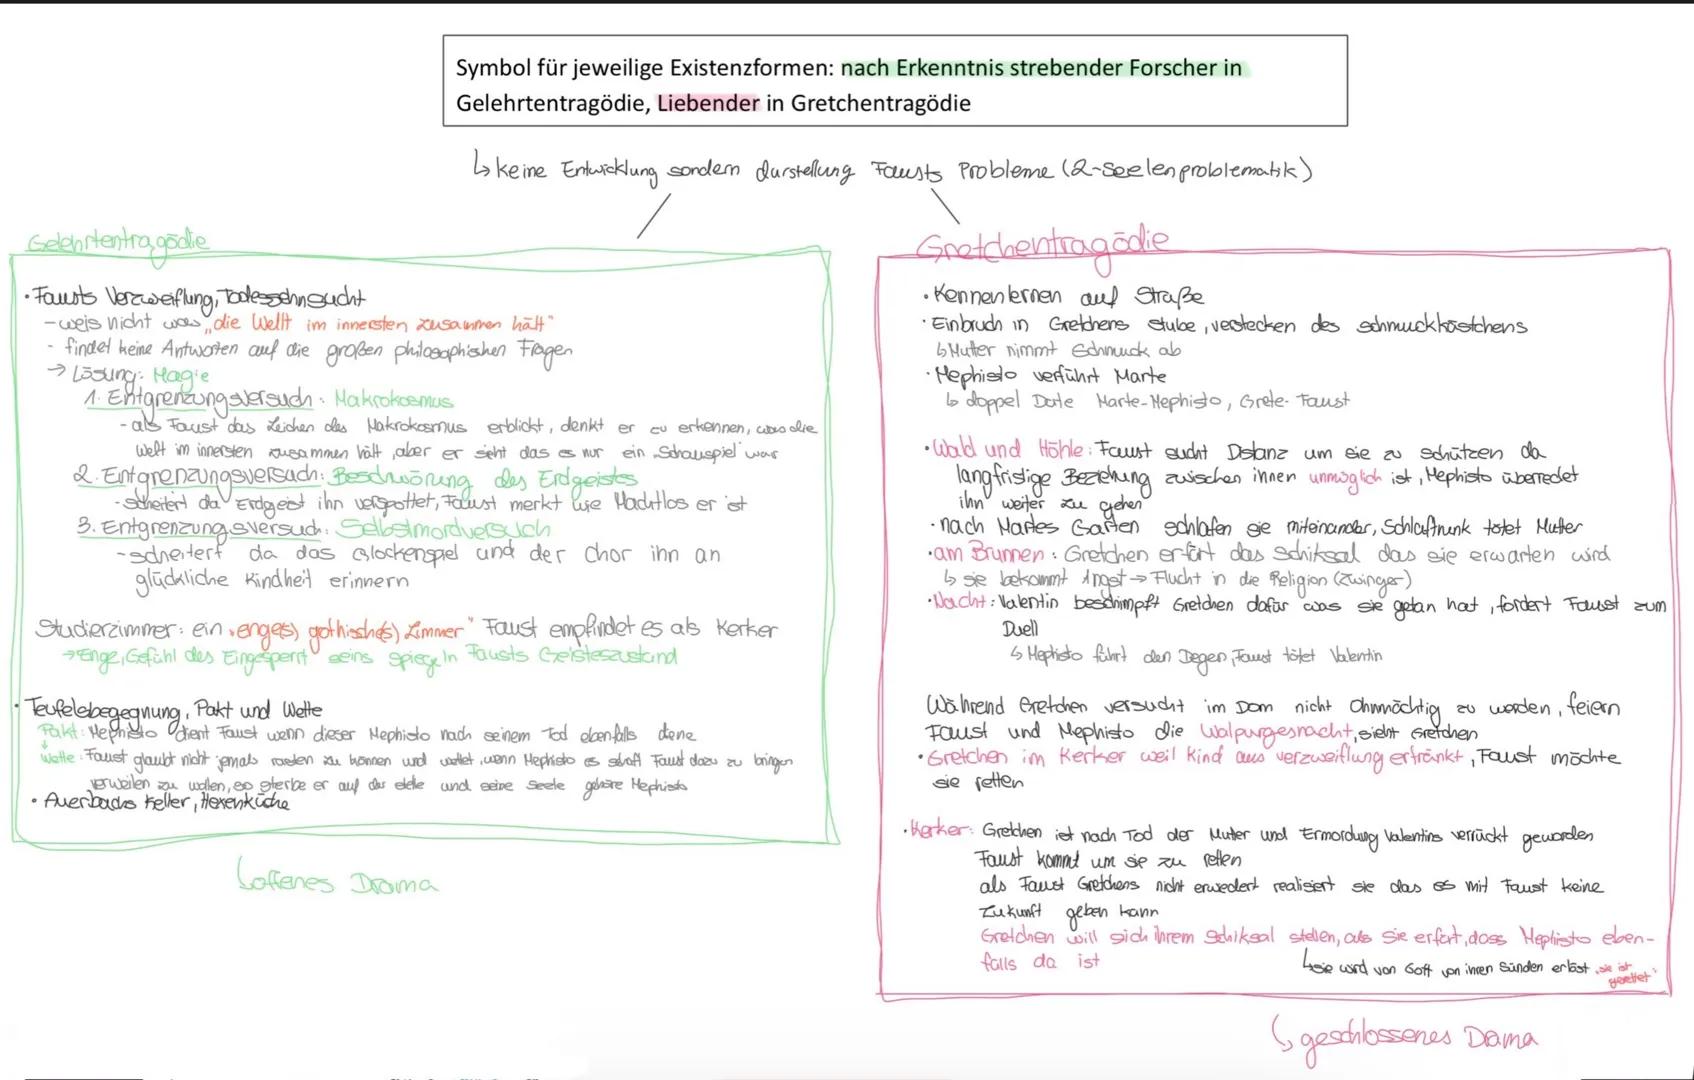 Symbol für jeweilige Existenzformen: nach Erkenntnis strebender Forscher in
Gelehrtentragödie, Liebender in Gretchentragödie
↳ keine Entwicklung sondern darstellung Fausts Probleme (2-Seelenproblematik)
Gelehrtentragödie
· Fausts Verzweiflung, Todessehnsucht
- weis nicht was „die Wellt im innersten zusammen hält"
- findet keine Antworten auf die großen philosophischen Fragen
→ Lösung: Magie
1. Entgrenzungsversuch: Makrokosmus
- als Faust das Zeichen des Makrokosmus erblickt, denkt er zu erkennen, was die
Welt im innersten zusammen hält, aber er sieht das es nur ein „Schauspiel" war
2. Entgrenzungsversuch: Beschwörung des Erdgeistes
- scheitert da Erdgeist ihn verspottet, Faust merkt wie Machtlos er ist
3. Entgrenzungsversuch: Selbstmordversuch
- scheitert da das Glockenspiel und der Chor ihn an
glückliche Kindheit erinnern
Studierzimmer: ein „enge(s) gothische(s) Zimmer" Faust empfindet es als Kerker
→ Enge, Gefühl des Eingesperrt seins spiegeln Fausts Geisteszustand
· Teufelsbegegnung, Pakt und Wette
Pakt: Mephisto dient Faust wenn dieser Mephisto nach seinem Tod ebenfalls diene
Wette: Faust glaubt nicht jemals rasten zu können und wettet, wenn Mephisto es schaft Faust dazu zu bringen
verweilen zu wollen, so sterbe er auf der stelle und seine Seele gehöre Mephisto
· Auerbachs Keller, Hexenküche
↳ offenes Drama
Gretchentragödie
· Kennenlernen auf Straße
· Einbruch in Gretchens stube, verstecken des schmuckkästchens
↳ Mutter nimmt Schmuck ab
· Mephisto verführt Marte
↳ doppel Date Marte-Mephisto, Grete-Faust
· Wald und Höhle: Faust sucht Distanz um sie zu schützen da
langfristige Beziehung zwischen ihnen unmöglich ist, Mephisto überredet
ihn weiter zu gehen
· nach Martes Garten schlafen sie miteinander, Schlaftrunk tötet Mutter
· am Brunnen: Gretchen erfärt das Schiksal das sie erwarten wird
↳ sie bekommt Angst → Flucht in die Religion (Zwinger)
· Nacht: Valentin beschimpft Gretchen dafür was sie getan hat, fordert Faust zum
Duell
↳ Mephisto führt den Degen, Faust tötet Valentin
Während Gretchen versucht im Dom nicht Ohnmächtig zu werden, feiern
Faust und Mephisto die Walpurgesnacht, sieht Gretchen
· Gretchen im Kerker weil kind aus verzweiflung ertränkt, Faust möchte
sie retten
· Kerker: Gretchen ist nach Tod der Mutter und Ermordung Valentins verrückt geworden
Faust kommt um sie zu retten
als Faust Gretchens nicht erwedert realisiert sie das es mit Faust keine
Zukunft geben kann
Gretchen will sich ihrem Schiksal stellen, als sie erfärt, dass Mephisto eben-
falls da ist
↳ sie wird von Gott von ihren Sünden erlöst „sie ist
gerettet"
↳ geschlossenes Drama